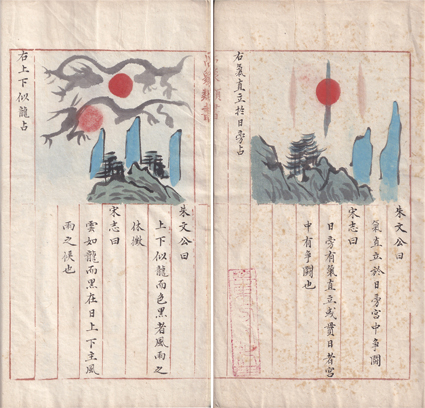 朱文公曰
氣直立於日旁宮中爭鬪
宋志曰
日旁有氣直立或貫日者宮
中有爭鬪也
右氣直立於日旁占
朱文公曰
上下似龍而色黑者風雨之
休徵
宋志曰
雲如龍而黑在日上下主風
雨之候也
右上下似龍占